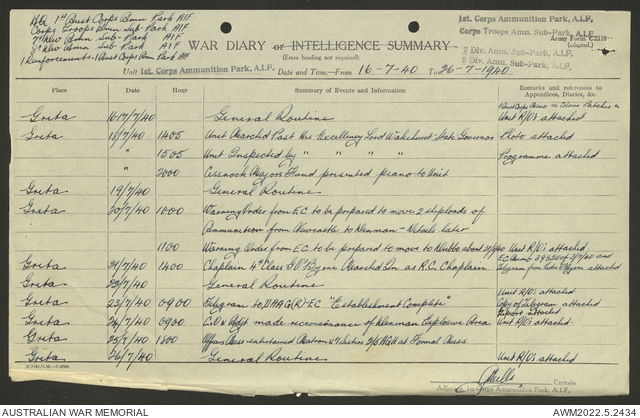 HQ 1st Aust Corps Amn Park AIF
Corps Troops Amn Sub-Park AIF
7th Div Amn Sub-Park AIF
8th Div Amn Sub-Park AIF
1 Reinforcements 1 Aust Corps Amn Park AIF
1st. Corps Ammunition Park, A.I.F.
Corps Troops Amn. Sub-Park, A.I.F.
Army Form C.2118
(adapted.)
7 Div. Amn. Sub-Park A.I.F.
8 Div. Amn. Sub-Park A.I.F.
WAR DIARY or INTELLIGENCE SUMMARY
(Erase heading not required).
Unit 1st. Corps Ammunition Park, A.I.F. Date and Time—From 16-7-40 To 26-7-1940
Place Date Hour Summary of Events and Information Remarks and references to
Appendices, Diaries, &c.
Greta 16-17/7/40 General Routine Unit R/O's attached
Greta 18/7/40 1405 Unit Marched Past His Excellency Lord Wakehurst - State Governor Photo attached
" 1505 Unit Inspected by " " " " Programme attached
" 2000 Cessnock Major's Band presented piano to Unit
Greta 19/7/40 General Routine
Greta 20/7/40 1000 Warning Order from E.C. to be prepared to move 2 shiploads of
Ammunition from Newcastle to Kenman - Details later
1100 Warning Order from E.C. to be prepared to move to Dubbo about 31/7/40 Unit R/O's attached
Greta 21/7/40 1400 Chaplain 4th Class Byrne Marched In as R.C. Chaplain
Greta 22/7/40 General Routine Unit R/O's attached
Greta 23/7/40 0900 Telegram to DAAG(R) E.C. "Establishment Complete" Copy of Telegram attached
Report attached
Greta 24/7/40 0900 C.O. & Adjt made reconnaissance of Kenman Explosive Area Unit R/O's attached
Greta 25/7/40 1800 Officers Mess entertained Matron & Sisters 2/5 AGH at Formal Mess.
Greta 26/7/40 General Routine Unit R/O's attached
Captain
Adjutant, 1st Corps Ammunition Park, A.I.F.
AUSTRALIAN WAR MEMORIAL
AWM2022.5.2434